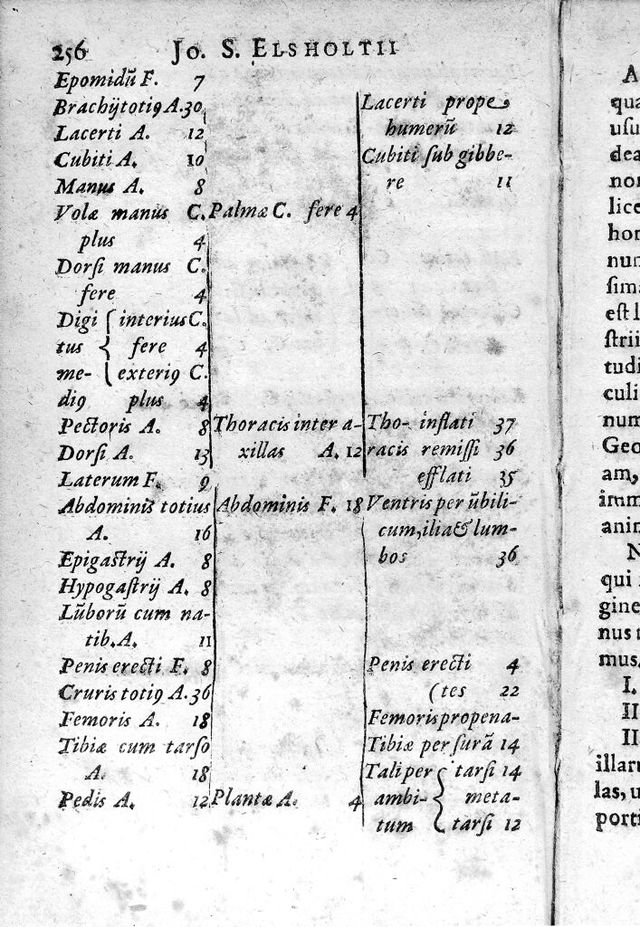 256 Jo. S. ELSHOLTII
Epomidũ F. 7
Brachij totiꝰ A. 30 Lacerti prope
Lacerti A. 12 humerũ 12
Cubiti A. 10 Cubiti ſub gibbe-
Manus A. 8 re 11
Volæ manus C. Palmæ C. fere 4
plus 4
Dorſi manus C.
fere 4
Digi { interius C.
tus fere 4
me- { exteriꝰ C.
diꝰ plus 4
Pectoris A. 8 Thoracis inter a- Tho- inflati 37
Dorſi A. 13 xillas A. 12 racis remiſſi 36
Laterum F. 9 efflati 35
Abdominis totius Abdominis F. 18 Ventris per ũbili-
A. 16 cum, ilia & lum-
Epigaſtrij A. 8 bos 36
Hypogaſtrij A. 8
Lũborũ cum na-
tib. A. 11
Penis erecti F. 8 Penis erecti 4
Cruris totiꝰ A. 36 (tes 22
Femoris A. 18 Femoris prope na-
Tibiæ cum tarſo Tibiæ per ſurã 14
A. 18 Tali per { tarſi 14
Pedis A. 12 Plantæ A. 4 ambi- meta-
tum { tarſi 12
A
qua
uſu
dea
nor
lice
hor
nun
ſima
eſt l
ſtrii
tudi
culi
num
Geo
am,
imm
anin
N
qui
gine
nus t
mus.
I.
II
II
illaru
las, u
porti